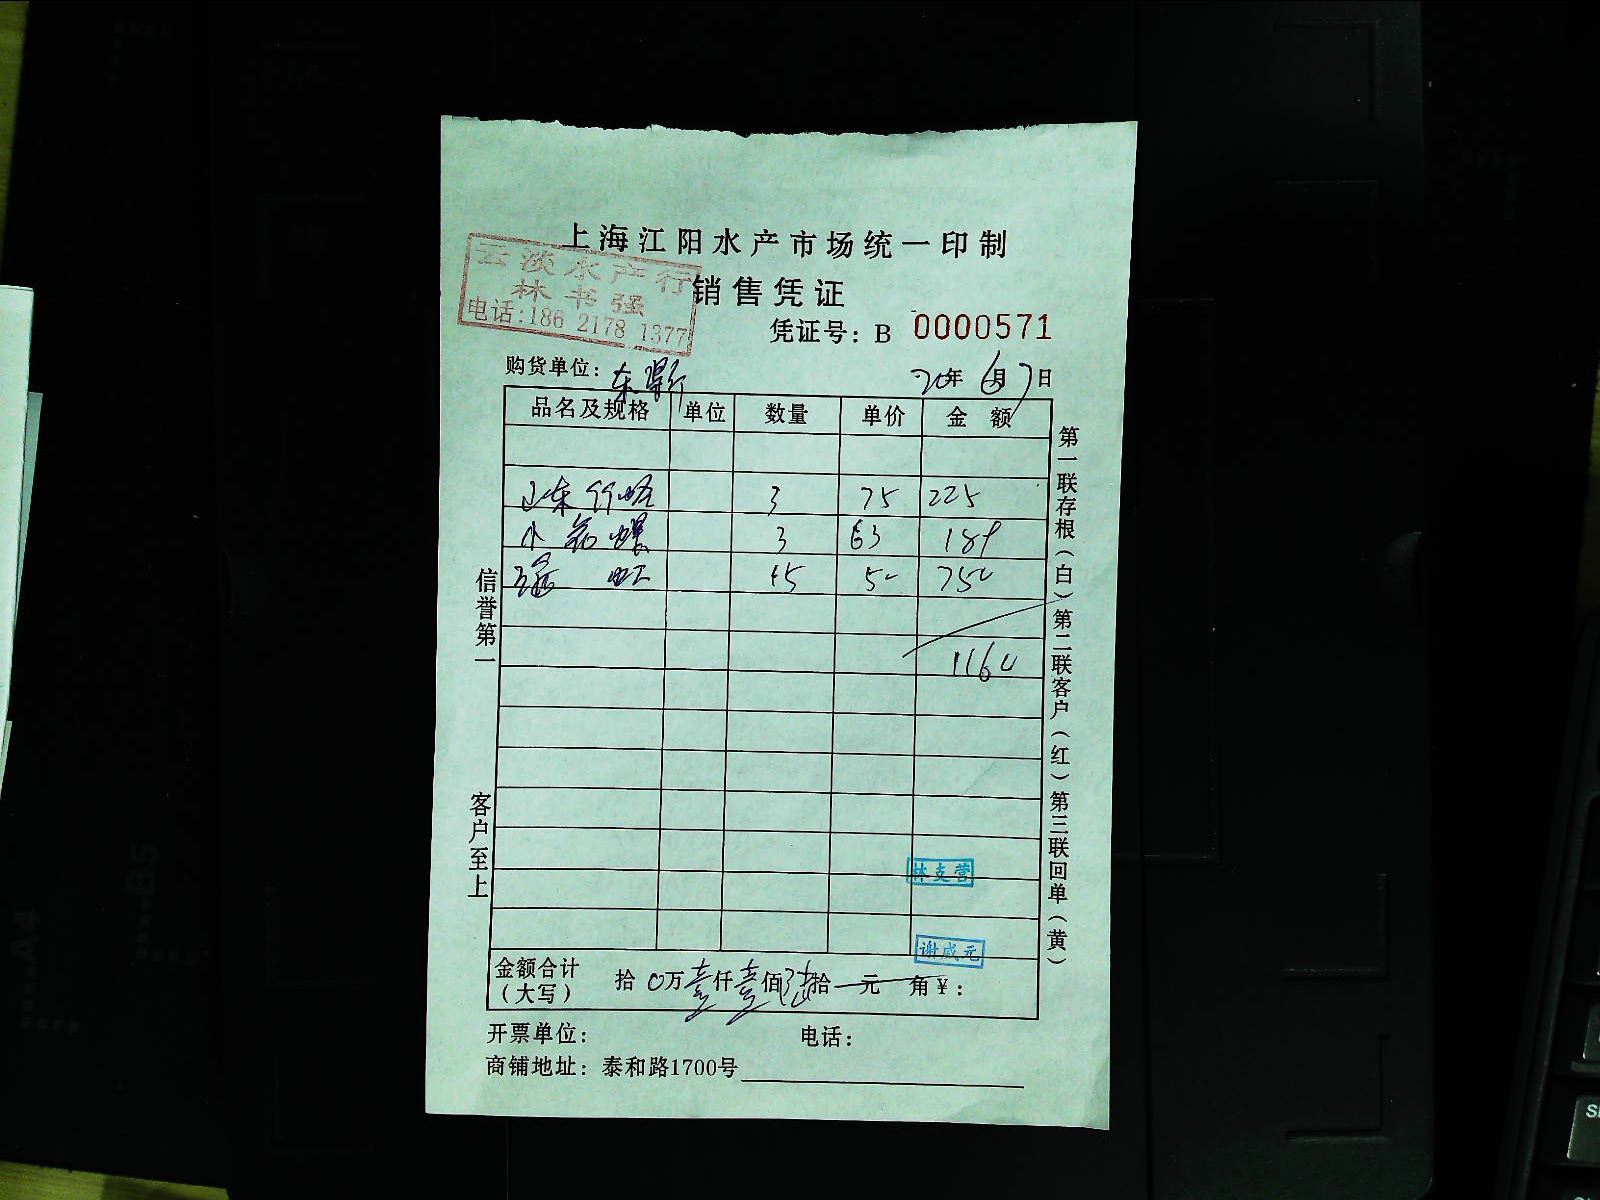 上海江阳水产市场统一印制
云淡水产行
林书强
电话:186 2178 1377
销售凭证
凭证号: B 0000571
购货单位:
20年 6月 7日
品名及规格 单位 数量 单价 金额
山东竹蛏 3 75 225
小 螺 3 63 189
虹 15 50 750
1160
信誉第一
客户至上
第一联存根(白)第二联客户(红)第三联回单(黄)
林支营
谢咸元
金额合计(大写) 拾 0万壹仟壹佰陆拾 元 角¥:
开票单位: 电话:
商铺地址: 泰和路1700号
A4
B5